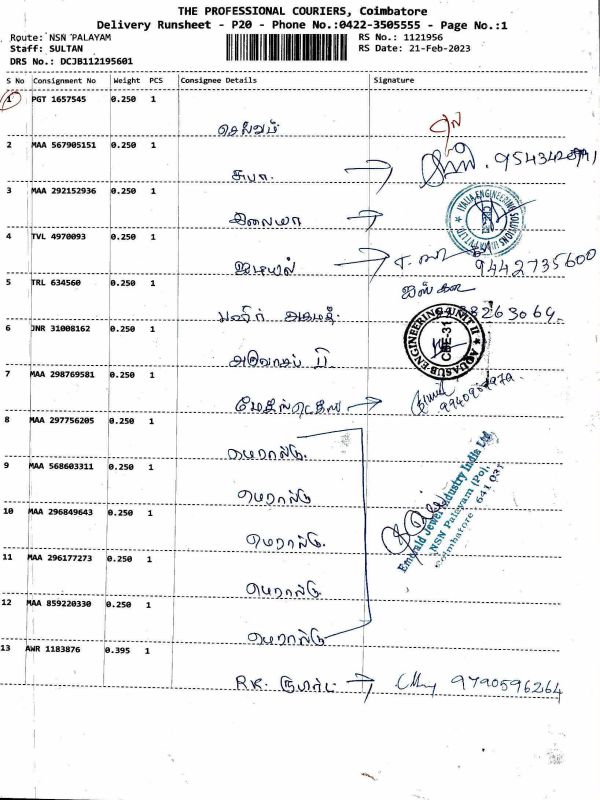 THE PROFESSIONAL COURIERS, Coimbatore
Delivery Runsheet - P20 - Phone No.:0422-3505555 - Page No.:1
Route: NSN PALAYAM
RS No.: 1121956
Staff: SULTAN
RS Date: 21-Feb-2023
DRS No.: DCJB112195601
S No Consignment No Weight PCS Consignee Details Signature
1 PGT 1657545 0.250 1
செல்வம்
2 MAA 567905151 0.250 1
சுபா.
3 MAA 292152936 0.250 1
ITALIA ENGINEERING SOLUTIONS
4 TVL 4970093 0.250 1
9442735600
5 TRL 634560 0.250 1
பஷீர் அகமத்.
6 JNR 31008162 0.250 1
AQUASUB ENGINEERING UNIT II
CBE-31
7 MAA 298769581 0.250 1
8 MAA 297756205 0.250 1
எமரால்டு.
9 MAA 568603311 0.250 1
எமரால்டு
Emerald Jewel Industry India Ltd
NSN Palayam (Po),
Coimbatore - 641 031
10 MAA 296849643 0.250 1
எமரால்டு.
11 MAA 296177273 0.250 1
எமரால்டு
12 MAA 859220330 0.250 1
எமரால்டு
13 AWR 1183876 0.395 1
RK. 9790596264